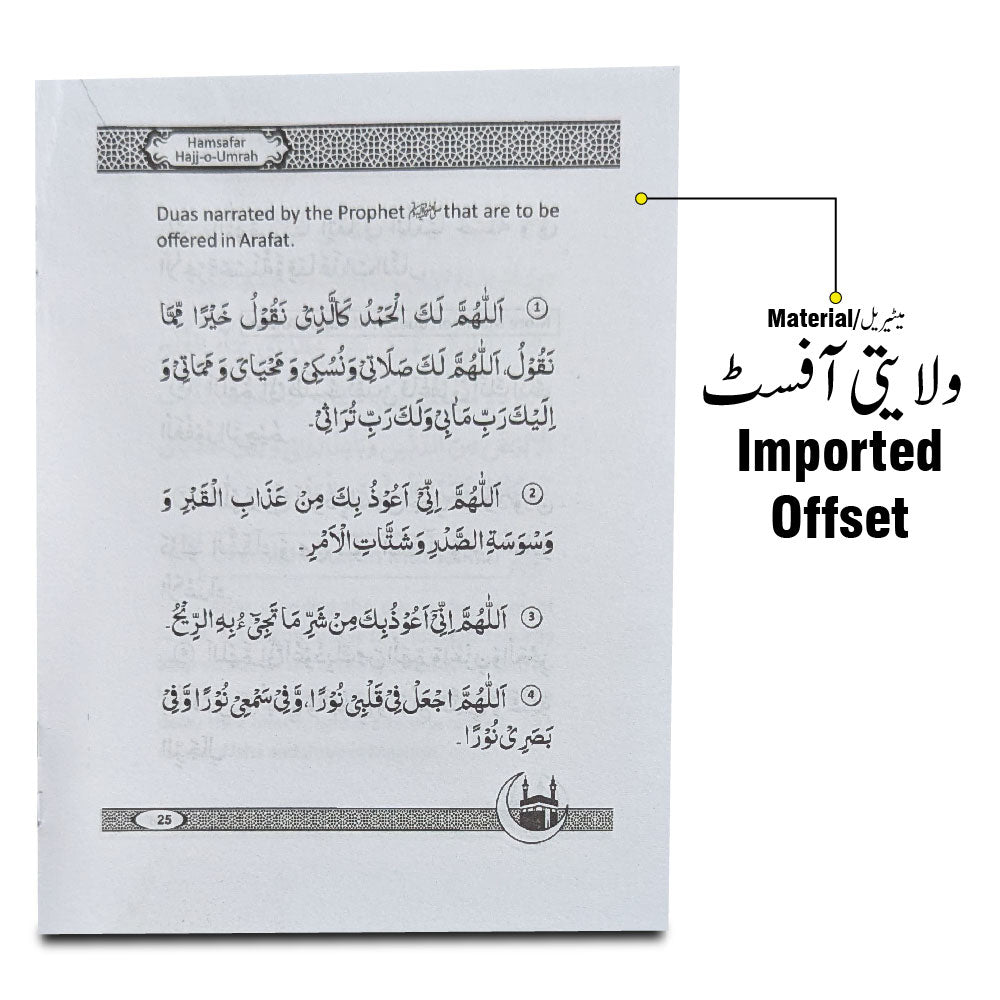 Hamsafar
Hajj-o-Umrah
Duas narrated by the Prophet ﷺ that are to be
offered in Arafat.
① اَللّٰهُمَّ لَكَ الْحَمْدُ كَالَّذِیْ نَقُوْلُ خَیْرًا مِّمَّا
نَقُوْلُ، اَللّٰهُمَّ لَكَ صَلَاتِیْ وَنُسُكِیْ وَ مَحْیَایَ وَ مَمَاتِیْ وَ
اِلَیْكَ رَبِّ مَاٰبِیْ وَلَكَ رَبِّ تُرَاثِیْ۔
② اَللّٰهُمَّ اِنِّیْۤ اَعُوْذُ بِكَ مِنْ عَذَابِ الْقَبْرِ وَ
وَسْوَسَةِ الصَّدْرِ وَ شَتَّاتِ الْاَمْرِ۔
③ اَللّٰهُمَّ اِنِّیْۤ اَعُوْذُ بِكَ مِنْ شَرِّ مَا تَجِیْٓءُ بِهِ الرِّیْحُ۔
④ اَللّٰهُمَّ اجْعَلْ فِیْ قَلْبِیْ نُوْرًا، وَّفِیْ سَمْعِیْ نُوْرًا وَّفِیْ
بَصَرِیْ نُوْرًا۔
25
Material/میٹیریل
ولایتی آفسٹ
Imported
Offset